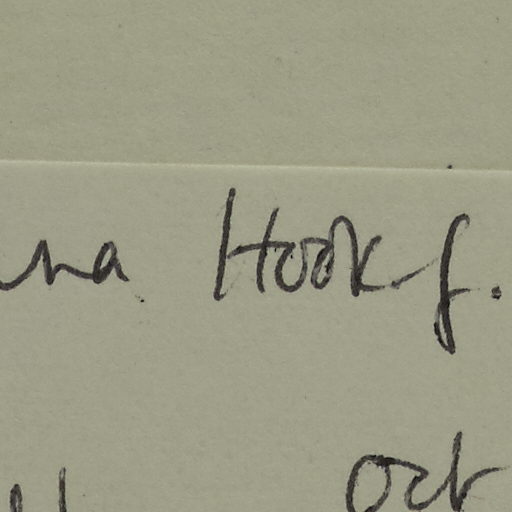 na Hook f.
Oct